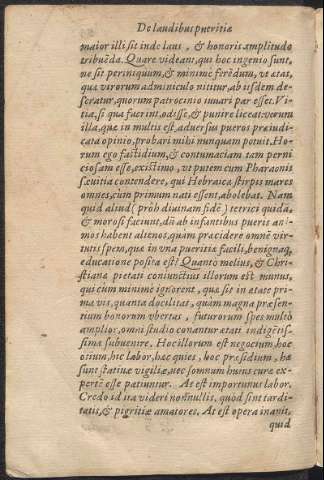 De laudibus pueritiæ
maior illi sit inde laus, & honoris amplitudo
tribuẽda. Quare videant, qui hoc ingenio sunt,
ne sit periniquum, & minimè ferẽdum, vt ætas,
quæ virorum adminiculo nititur, ab iisdem de-
seratur, quorum patrocinio iuuari par esset. Vi-
tia, si qua fuerint, odisse, & punire liceat: verùm
illa, quæ in multis est, aduersus pueros præiudi-
cata opinio, probari mihi nunquam potuit. Ho-
rum ego fastidium, & contumaciam tam perni
ciosam esse, existimo, vt putem cum Pharaonis
sæuitia contendere, qui Hebraicæ stirpis mares
omnes, cùm primùm nati essent, abolebat. Nam
quid aliud (proh diuinam fidẽ) tetrici quidã,
& morosi faciunt, dũ ab infantibus pueris ani-
mos habent alienos, quàm præcidere omnẽ vir-
tutis spem, quæ in vna pueritia facili, benignaq́;
educatione posita est? Quantò melius, & Chri-
stianæ pietati coniunctius illorum est munus,
qui cùm minimè ignorent, quæ sit in ætate pri-
ma vis, quanta docilitas, quàm magna præsen-
tium bonorum vbertas, futurorum spes multò
amplior, omni studio conantur ætati indigẽtis-
simæ subuenire. Hoc illorum est negocium, hoc
otium, hic labor, hæc quies, hoc præsidium, hæ
sunt statiuæ vigiliæ, nec somnum huius curæ ex-
pertẽ esse patiuntur. At est importunus labor.
Credo id ita videri nonnullis, quòd sint tardi-
tatis, & pigritiæ amatores. At est opera inanis,
quid